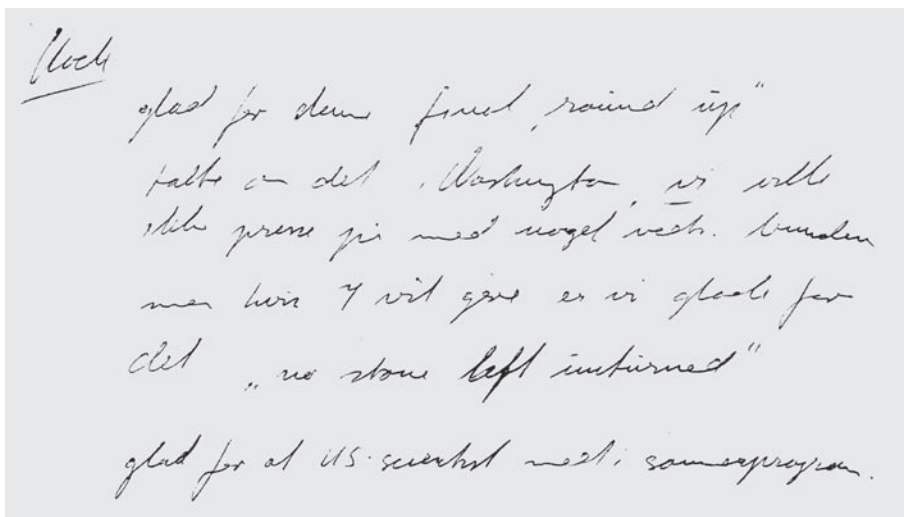 glad for denne final „round up"
talte om det i Washington, vi ville
ikke presse på med noget vedr. bunden
men hvis I vil gøre er vi glade for
det „no stone left unturned"
glad for at US. scientist med i sommerprogram.